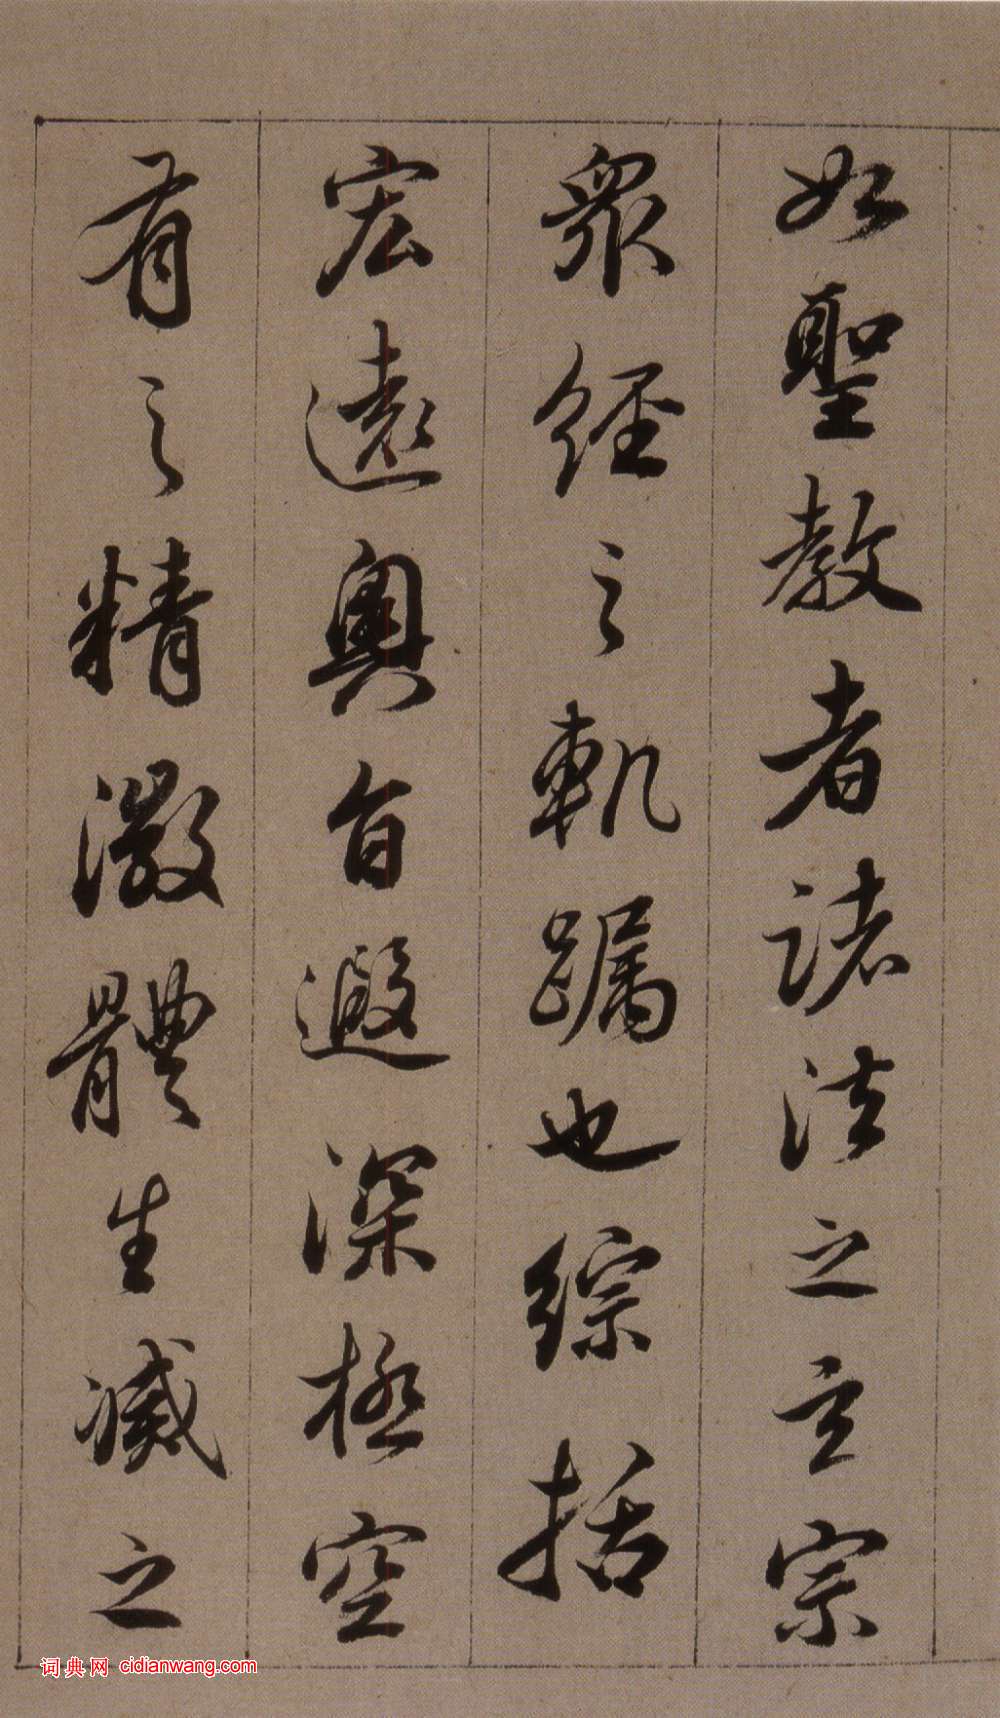 如聖教者諸法之玄宗
眾經之軌躅也綜括
宏遠奧旨遐深極空
有之精微體生滅之
词典网 cidianwang.com